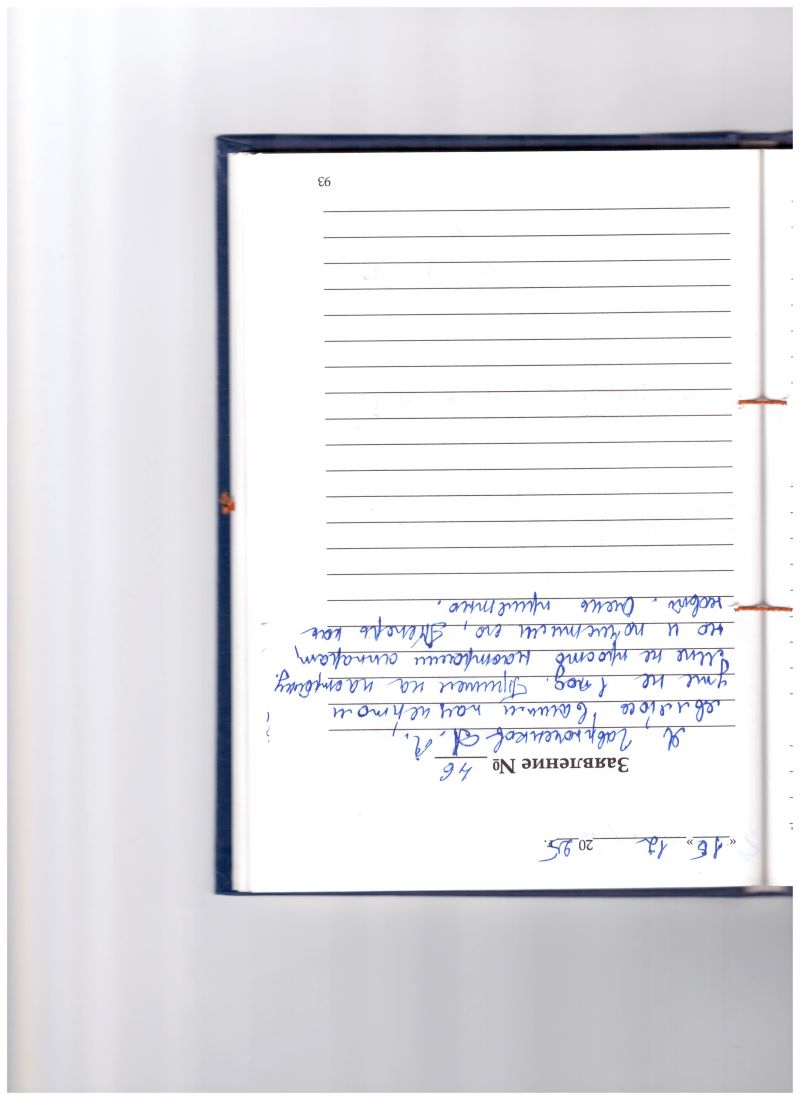 «16» 12 2025 г.
Заявление № 46
Я, Гаврюченков А. И.,
являюсь Вашим пациентом
уже не 1 год. Пришел на настройку.
Мне не просто настроили аппарат,
но и почистили его, теперь как
новый. Очень приятно.
93